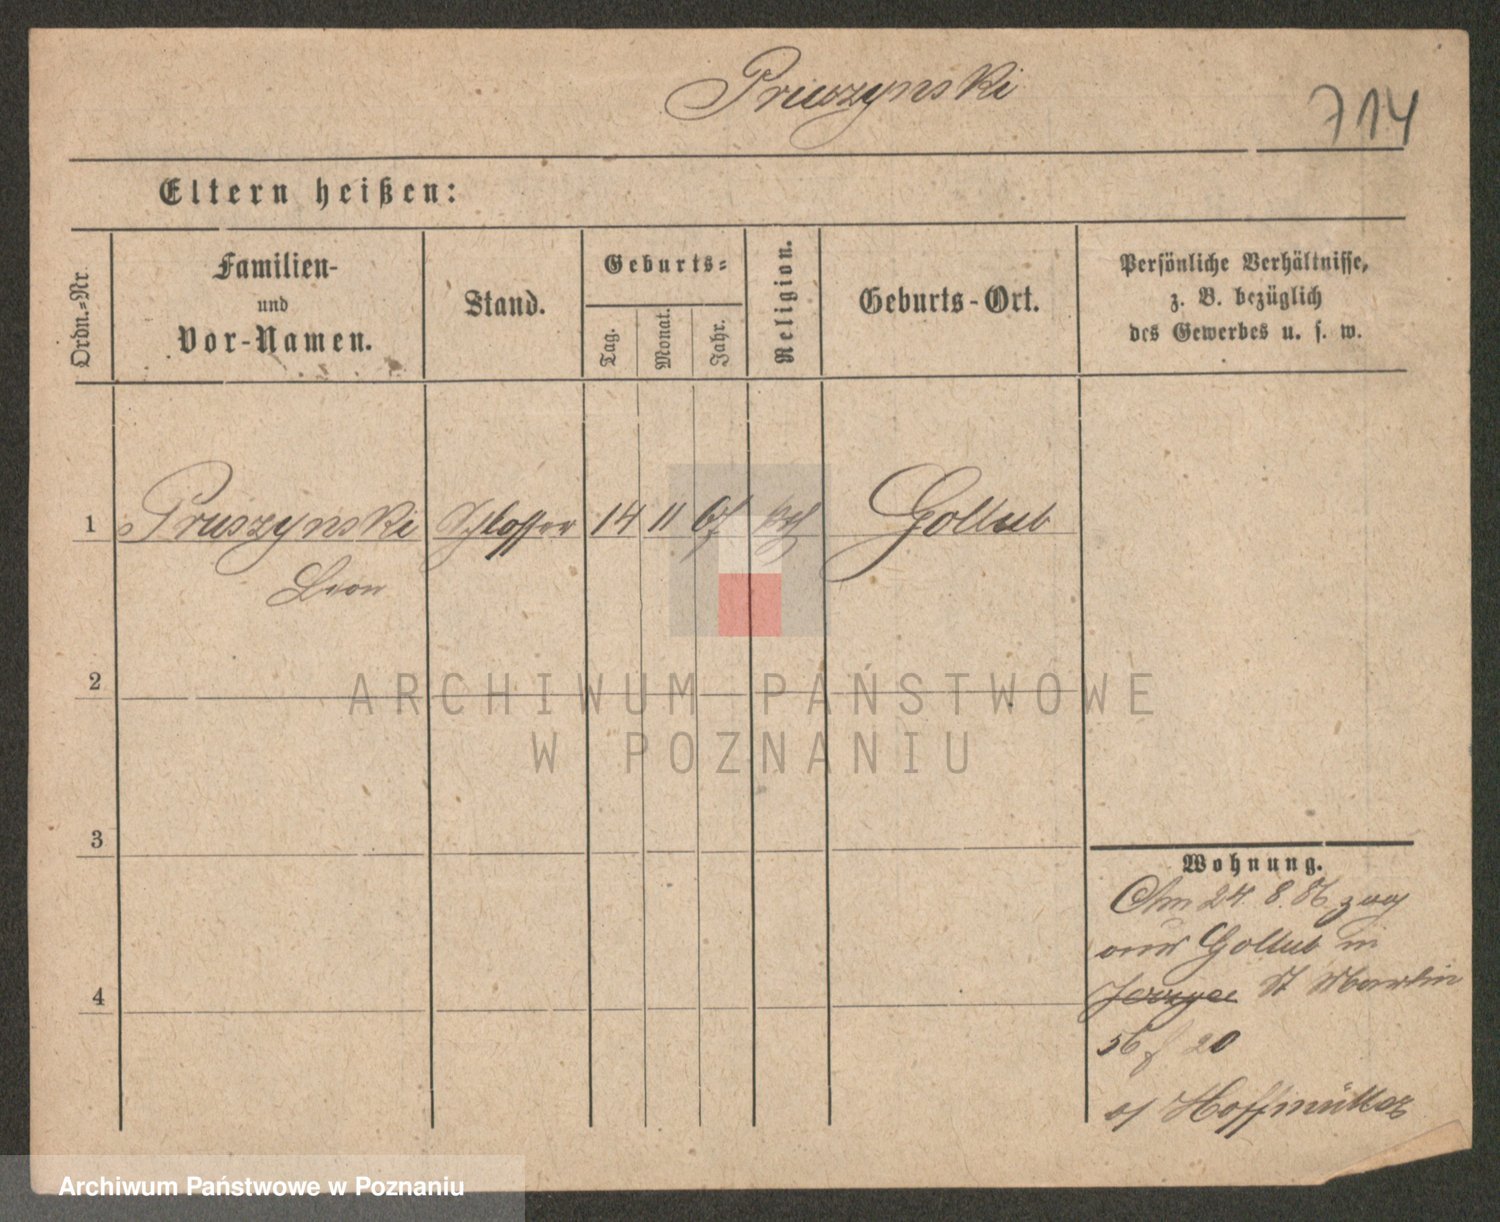 Pruszynski
714
Eltern heißen:
Ordn.-Nr.
Familien-
und
Vor-Namen.
Stand.
Geburts-
Tag.
Monat.
Jahr.
Religion.
Geburts-Ort.
Persönliche Verhältnisse,
z. B. bezüglich
des Gewerbes u. s. w.
1 Pruszynski Schlosser 14 11 kth Gollub
Leon
2
ARCHIWUM PAŃSTWOWE
W POZNANIU
3
4
Wohnung.
Am 24. 8. 86 zog
aus Gollub in
Jerzyce St Martin
56 20
Hoffmüller
Archiwum Państwowe w Poznaniu